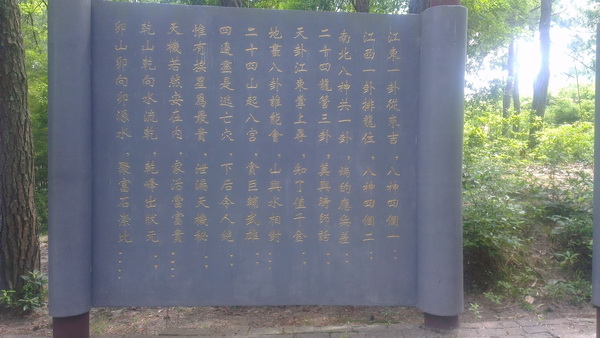 江東一卦從來吉，八神四個一。
江西一卦排龍位，八神四個二。
南北八神共一卦，端的應無差。
二十四龍管三卦，莫與時師話。
天卦江東掌上尋，知了值千金。
地畫八卦誰能會，山與水相對。
二十四山起八宮，貪巨輔武雄。
四邊盡是逃亡穴，下后令人絕。
惟有挨星為最貴，泄漏天機秘。
天機若然安在內，家活當富貴……
乾山乾向水流乾，乾峰出狀元。
卯山卯向卯源水，驟富石崇比……